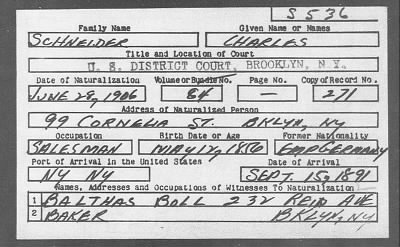 S 536
Family Name Given Name or Names
SCHNEIDER CHARLES
Title and Location of Court
U. S. DISTRICT COURT, BROOKLYN, N. Y.
Date of Naturalization Volume or Bundle No. Page No. Copy of Record No.
JUNE 28, 1906 84 — 271
Address of Naturalized Person
99 CORNELIA ST. BKLYN, NY
Occupation Birth Date or Age Former Nationality
SALESMAN MAY 17, 1856 EMP GERMANY
Port of Arrival in the United States Date of Arrival
NY NY SEPT. 15, 1891
Names, Addresses and Occupations of Witnesses To Naturalization
1 BALTHAS BOLL 232 REID AVE
2 BAKER BKLYN, NY